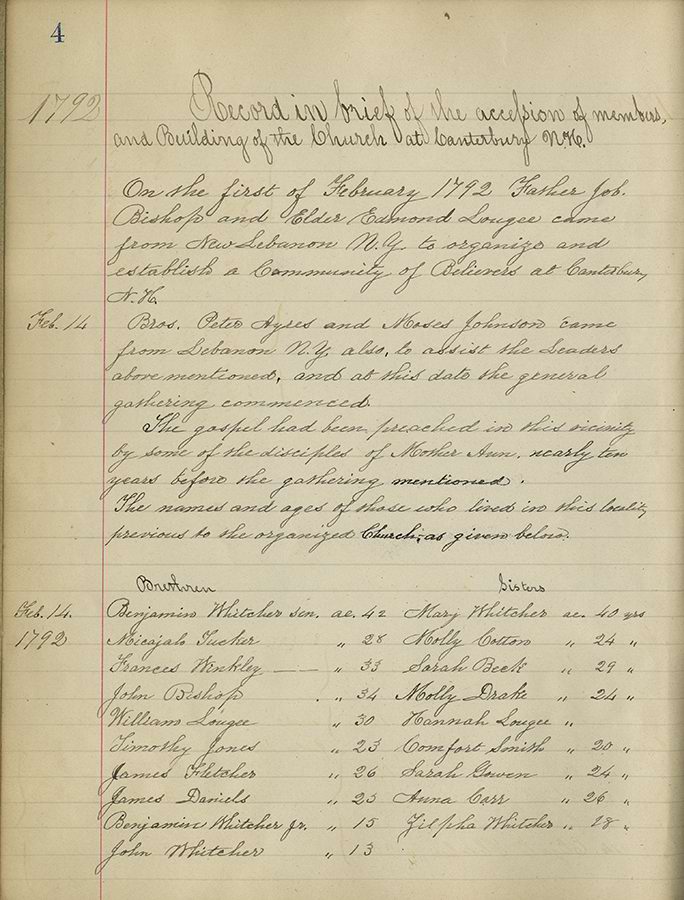 4
1792
Record in brief of the accession of members,
and Building of the Church at Canterbury N.H.
On the first of February 1792 Father Job.
Bishop and Elder Edmond Lougee came
from New Lebanon N.Y. to organize and
establish a Community of Believers at Canterbury,
N.H.
Feb. 14 Bros. Peter Ayres and Moses Johnson came
from Lebanon N.Y. also, to assist the Leaders
above mentioned, and at this date the general
gathering commenced.
The gospel had been preached in this vicinity
by some of the disciples of Mother Ann, nearly ten
years before the gathering mentioned.
The names and ages of those who lived in this locality
previous to the organized Church, as given below.
Brethren Sisters
Feb. 14. Benjamin Whitcher sen. ae. 42 Mary Whitcher ae. 40 yrs
1792 Micajah Tucker „ 28 Molly Cotton „ 24 „
Frances Winkley — „ 33 Sarah Beck „ 29 „
John Bishop „ 34 Molly Drake „ 24 „
William Lougee „ 30 Hannah Lougee „
Timothy Jones „ 23 Comfort Smith „ 20 „
James Fletcher „ 26 Sarah Gowen „ 24 „
James Daniels „ 25 Anna Carr „ 26 „
Benjamin Whitcher Jr. „ 15 Zilpha Whitcher „ 18 „
John Whitcher „ 13